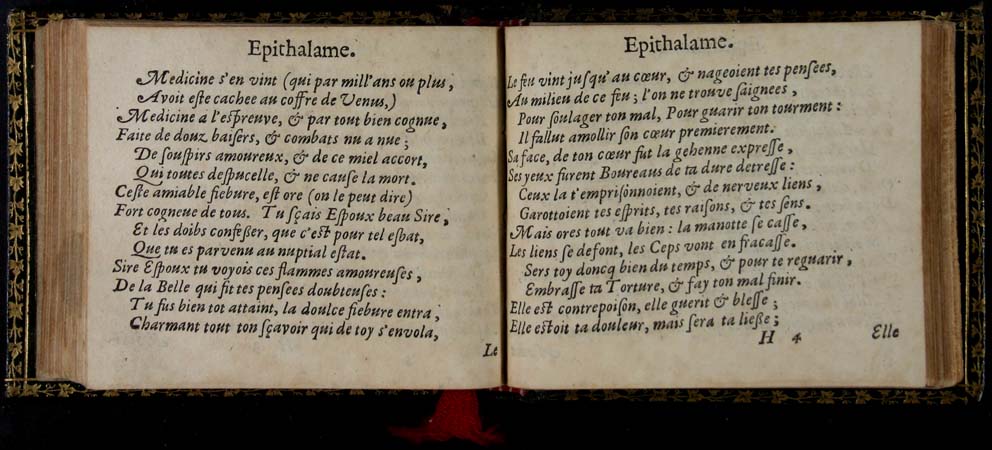 Epithalame.
Medicine s'en vint (qui par mill'ans ou plus,
Avoit este cachee au coffre de Venus,)
Medicine a l'espreuve, & par tout bien cognue,
Faite de douz baisers, & combats nu a nue;
De souspirs amoureux, & de ce miel accort,
Qui toutes despucelle, & ne cause la mort.
Ceste amiable fiebure, est ore (on le peut dire)
Fort cogneue de tous. Tu sçais Espoux beau Sire,
Et les doibs confesser, que c'est pour tel esbat,
Que tu es parvenu au nuptial estat.
Sire Espoux tu voyois ces flammes amoureuses,
De la Belle qui fit tes pensees doubteuses:
Tu fus bien tot attaint, la doulce fiebure entra,
Charmant tout ton sçavoir qui de toy s'envola,
Le
Epithalame.
Le feu vint jusqu'au cœur, & nageoient tes pensées,
Au milieu de ce feu; l'on ne trouve saignees,
Pour soulager ton mal, Pour guarir ton tourment:
Il fallut amollir son cœur premierement.
Sa face, de ton cœur fut la gehenne expresse,
Ses yeux furent Boureaus de ta dure detresse:
Ceux la t'emprisonnoient, & de nerveux liens,
Garottoient tes esprits, tes raisons, & tes sens.
Mais ores tout va bien: la manotte se casse,
Les liens se defont, les Ceps vont en fracasse.
Sers toy doncq bien du temps, & pour te reguarir,
Embrasse ta Torture, & fay ton mal finir.
Elle est contrepoison, elle guerit & blesse;
Elle estoit ta douleur, mais sera ta liesse;
H 4 Elle